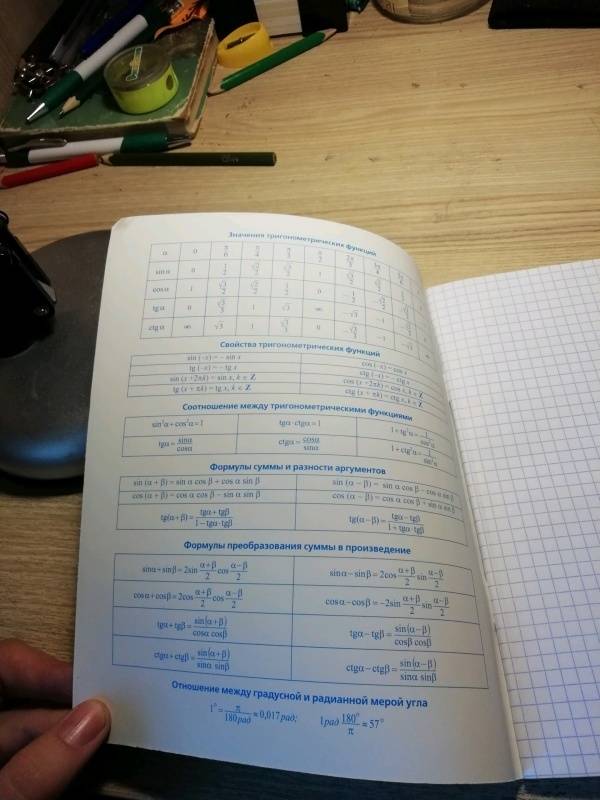 Значения тригонометрических функций
α 0 π/6 π/4 π/3 π/2 2π/3
sinα 0 1/2 √2/2 √3/2 1
cosα 1 √3/2 √2/2 1/2 0 −1/2
tgα 0 √3/3 1 √3 ∞ −√3 −1
ctgα ∞ √3 1 √3/3 0 −√3/3 −1
Свойства тригонометрических функций
sin (-x) = - sin x cos (-x) = cos x
tg (-x) = - tg x ctg (-x) = - ctg x
sin (x +2πk) = sin x, k ∈ Z cos (x +2πk) = cos x, k ∈ Z
tg (x + πk) = tg x, k ∈ Z ctg (x + πk) = ctg x, k ∈ Z
Соотношение между тригонометрическими функциями
sin²α+cos²α=1 tgα·ctgα=1 1+tg²α=
tgα= sinα/cosα ctgα= cosα/sinα 1+ctg²α= 1/sin²α
Формулы суммы и разности аргументов
sin (α + β) = sin α cos β + cos α sin β sin (α − β) = sin α cos β − cos α sin β
cos (α + β) = cos α cos β − sin α sin β cos (α − β) = cos α cos β + sin α sin β
tg(α+β)= (tgα+tgβ)/(1−tgα·tgβ) tg(α−β)= (tgα−tgβ)/(1+tgα·tgβ)
Формулы преобразования суммы в произведение
sinα+sinβ=2sin (α+β)/2 cos (α−β)/2 sinα−sinβ=2cos (α+β)/2 sin (α−β)/2
cosα+cosβ=2cos (α+β)/2 cos (α−β)/2 cosα−cosβ=−2sin (α+β)/2 sin (α−β)/2
tgα+tgβ= sin(α+β)/(cosα cosβ) tgα−tgβ= sin(α−β)/(cosβ cosβ)
ctgα+ctgβ= sin(α+β)/(sinα sinβ) ctgα−ctgβ= sin(α−β)/(sinα sinβ)
Отношение между градусной и радианной мерой угла
1°= π/180 рад ≈ 0,017 рад; 1рад 180°/π ≈ 57°